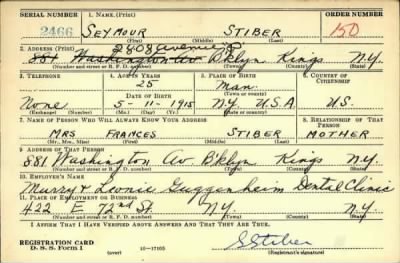 SERIAL NUMBER 1. NAME (Print) ORDER NUMBER
2466 SEYMOUR STIBER 150
(First) (Middle) (Last)
2808 Avenue P
2. ADDRESS (Print)
881 Washington Av B'klyn Kings N.Y.
(Number and street or R. F. D. number) (Town) (County) (State)
3. TELEPHONE 4. AGE IN YEARS 5. PLACE OF BIRTH 6. COUNTRY OF CITIZENSHIP
25 Man.
DATE OF BIRTH (Town or county)
None 5-11-1915 N.Y. U.S.A U.S.
(Exchange) (Number) (Mo.) (Day) (Yr.) (State or country)
7. NAME OF PERSON WHO WILL ALWAYS KNOW YOUR ADDRESS 8. RELATIONSHIP OF THAT PERSON
MRS FRANCES STIBER MOTHER
(Mr., Mrs., Miss) (First) (Middle) (Last)
9. ADDRESS OF THAT PERSON
881 Washington Av B'klyn Kings N.Y.
(Number and street or R. F. D. number) (Town) (County) (State)
10. EMPLOYER'S NAME
Murry & Leonie Guggenheim Dental Clinic
11. PLACE OF EMPLOYMENT OR BUSINESS
422 E 72nd St. N.Y. N.Y.
(Number and street or R. F. D. number) (Town) (County) (State)
I AFFIRM THAT I HAVE VERIFIED ABOVE ANSWERS AND THAT THEY ARE TRUE.
REGISTRATION CARD
D. S. S. Form 1 (over) 16—17105 S Stiber
(Registrant's signature)